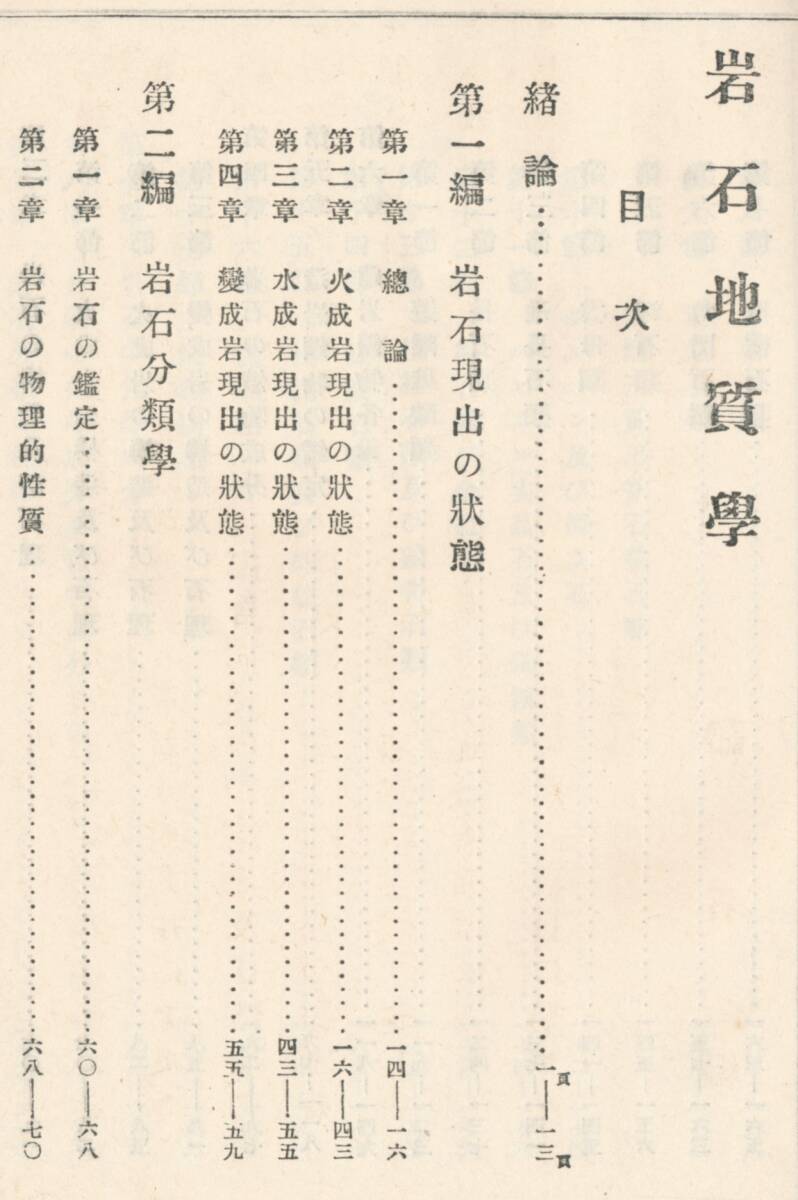 岩石地質學
目次
緒論……………………………一頁——一三頁
第一編 岩石現出の狀態
第一章 總論……………………………一四——一六
第二章 火成岩現出の狀態……………………………一六——四三
第三章 水成岩現出の狀態……………………………四三——五五
第四章 變成岩現出の狀態……………………………五五——五九
第二編 岩石分類學
第一章 岩石の鑑定……………………………六〇——六八
第二章 岩石の物理的性質……………………………六八——七〇